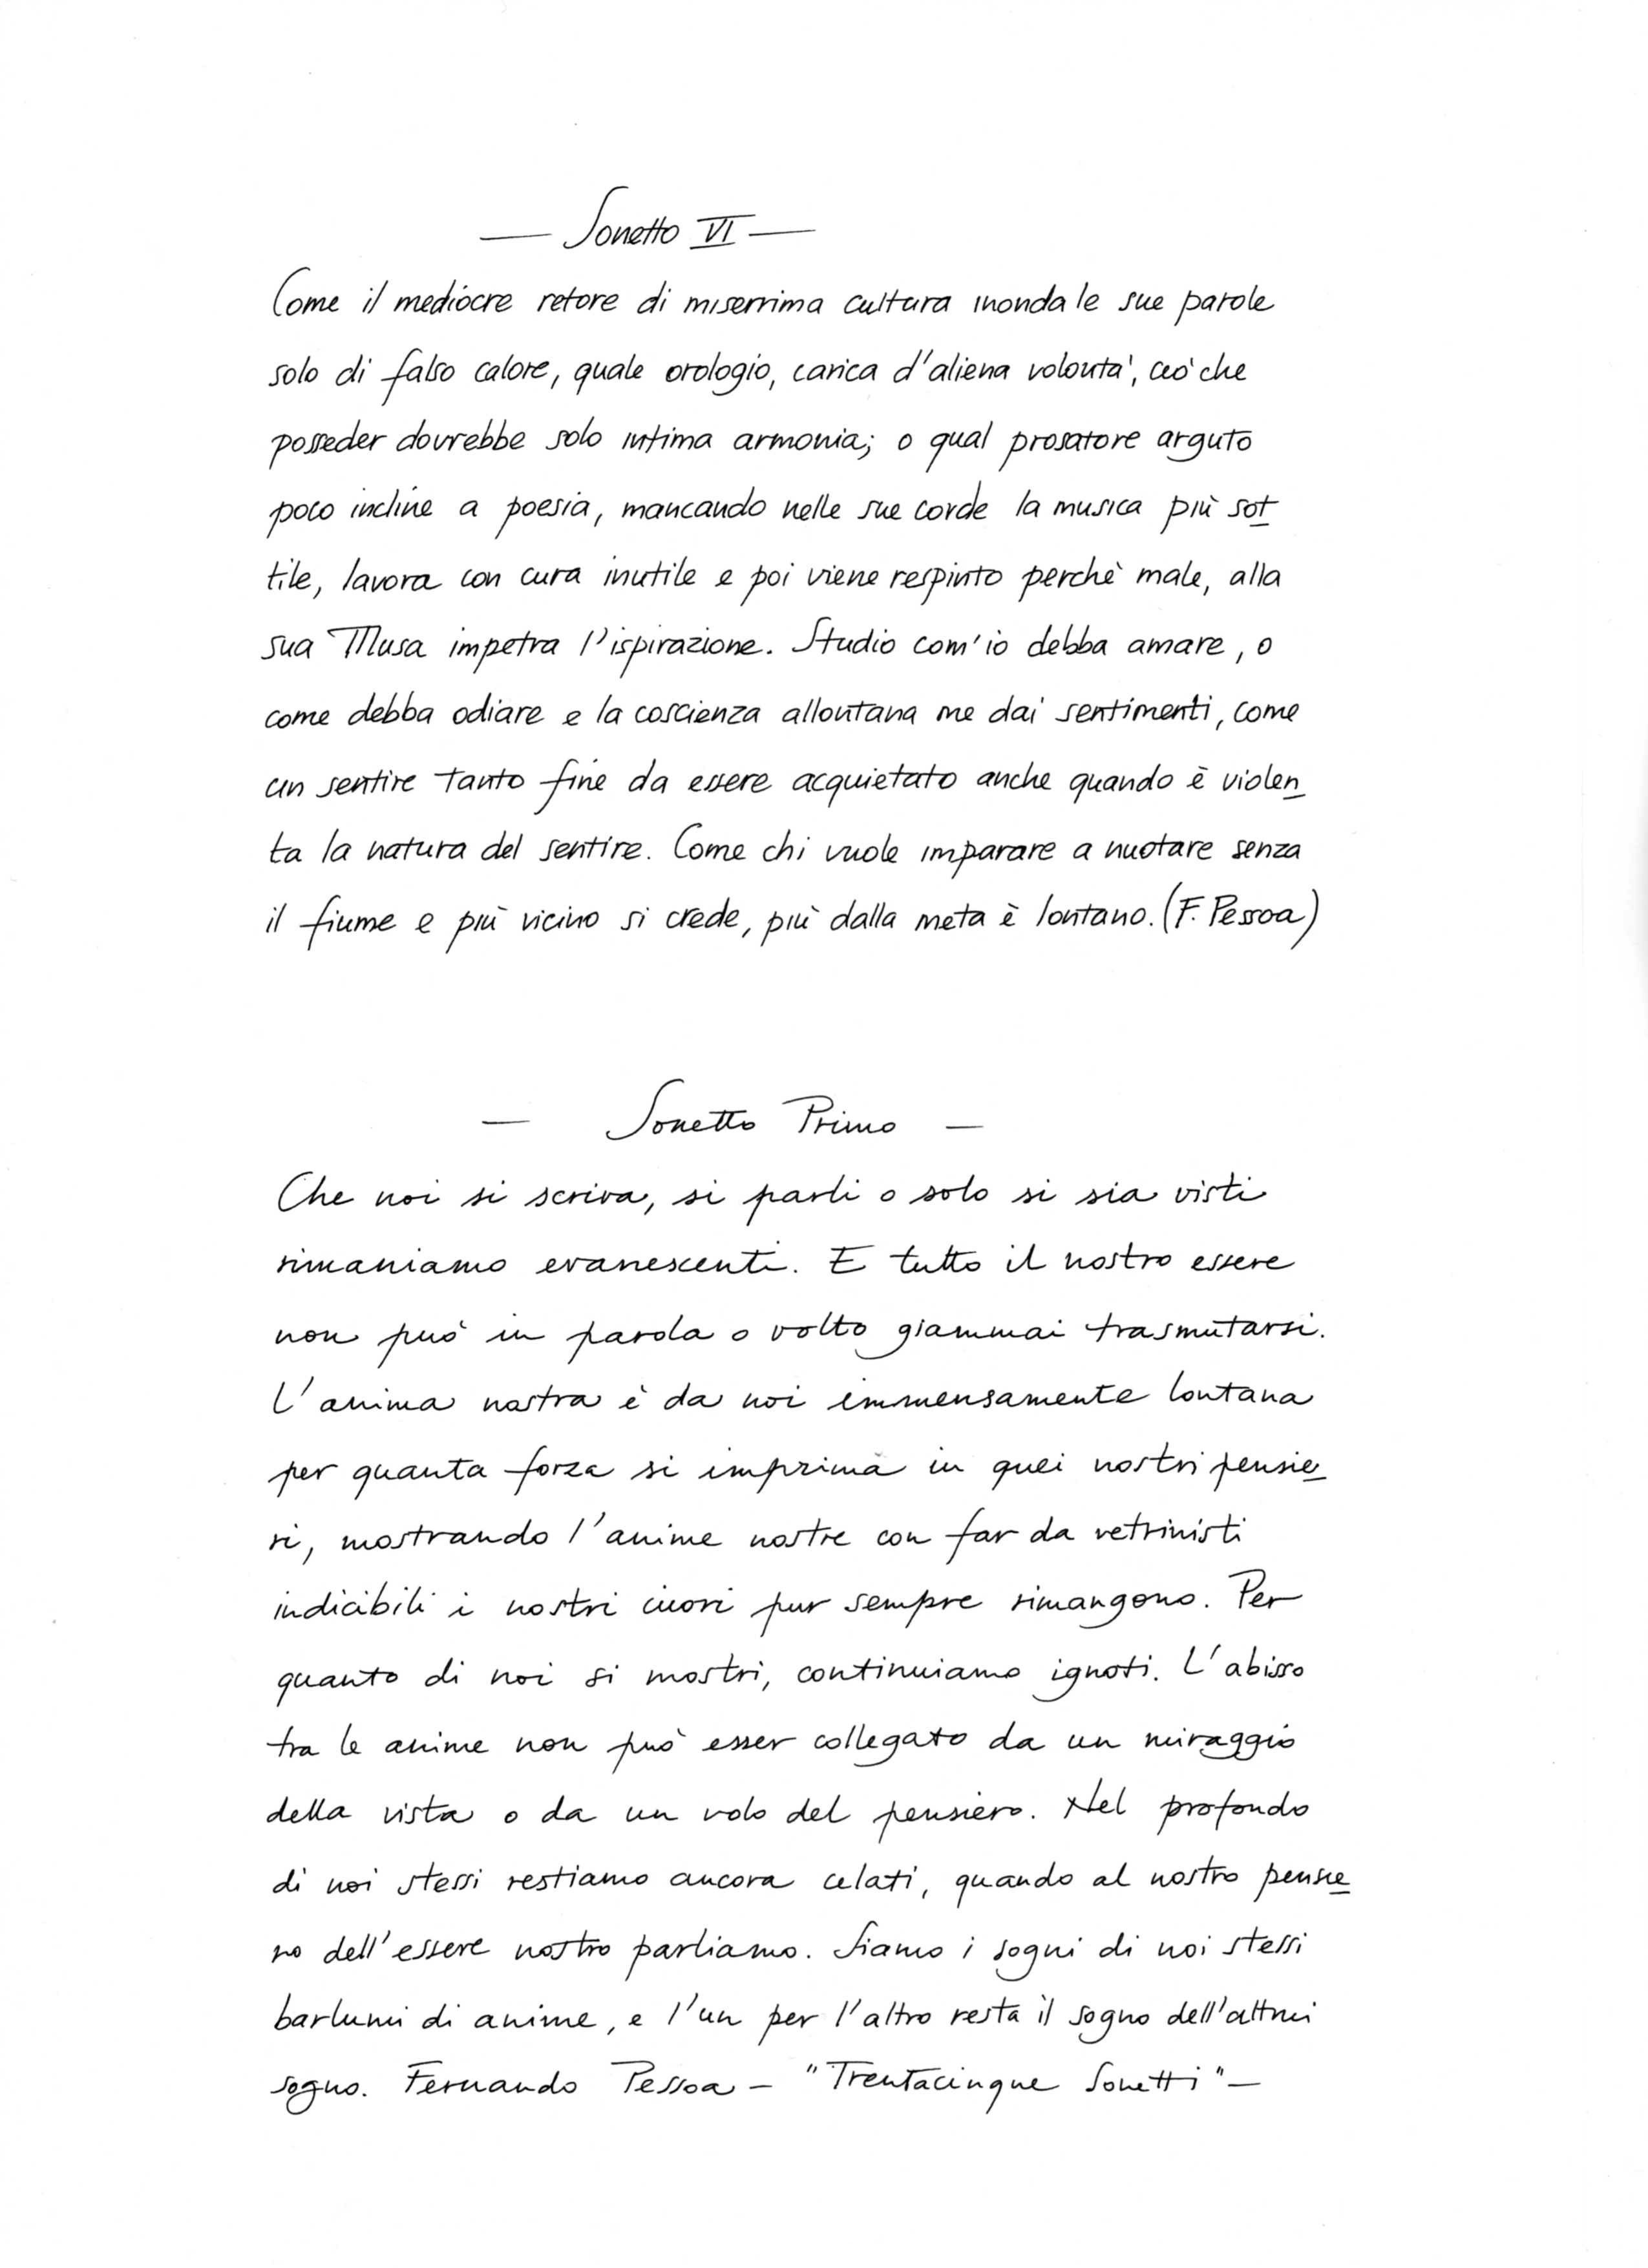 — Sonetto VI —
Come il mediocre retore di miserrima cultura inonda le sue parole
solo di falso calore, quale orologio, carica d'aliena volontà, ciò che
posseder dovrebbe solo intima armonia; o qual prosatore arguto
poco incline a poesia, mancando nelle sue corde la musica più sot
tile, lavora con cura inutile e poi viene respinto perchè male, alla
sua Musa impetra l'ispirazione. Studio com'io debba amare, o
come debba odiare e la coscienza allontana me dai sentimenti, come
un sentire tanto fine da essere acquietato anche quando è violen
ta la natura del sentire. Come chi vuole imparare a nuotare senza
il fiume e più vicino si crede, più dalla meta è lontano. (F. Pessoa)
— Sonetto Primo —
Che noi si scriva, si parli o solo si sia visti
rimaniamo evanescenti. E tutto il nostro essere
non può in parola o volto giammai trasmutarsi.
L'anima nostra è da noi immensamente lontana
per quanta forza si imprima in quei nostri pensie
ri, mostrando l'anime nostre con far da vetrinisti
indicibili i nostri cuori pur sempre rimangono. Per
quanto di noi si mostri, continuiamo ignoti. L'abisso
tra le anime non può esser collegato da un miraggio
della vista o da un volo del pensiero. Nel profondo
di noi stessi restiamo ancora celati, quando al nostro pensie
ro dell'essere nostro parliamo. Siamo i sogni di noi stessi
barlumi di anime, e l'un per l'altro resta il sogno dell'altrui
sogno. Fernando Pessoa — "Trentacinque Sonetti" —